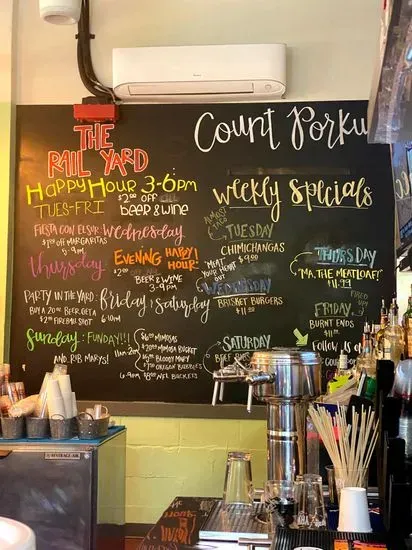 THE
RAIL YARD
HAPPY HOUR 3-6PM
TUES-FRI
$2.00 OFF ALL
BEER & WINE
FIESTA CON ELSUR Wednesday
$1.00 OFF MARGARITAS
5-9PM
Thursday EVENING HAPPY HOUR!
$2.00 OFF
BEER & WINE
3-9PM
PARTY IN THE YARD: Friday & Saturday
BUY A 20oz BEER GET A
$2 FIREBALL SHOT 6-10PM
Sunday: FUNDAY!!!
AND RIB MARYS! 11AM-2PM
$6.00 MIMOSAS
$20.00 MIMOSA BUCKET
BLOODY MARY
OREGON BUBBLES
NFL BUCKETS
Count Porku
Weekly Specials
TUESDAY
CHIMICHANGAS
$9.00
"MEAT
YOUR
WEDNESDAY
BRISKET BURGERS
$11.00
THURSDAY
"MR. THE MEATLOAF!"
$11.99
FIRED UP!
FRIDAY
BURNT ENDS
$11.00
SATURDAY
BEEF
FOLLOW
BEVERAGE-AIR